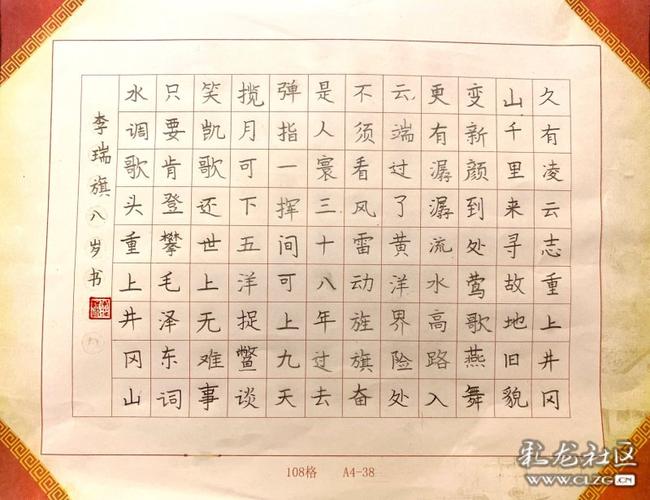 久有凌云志重上井冈
山千里来寻故地旧貌
变新颜到处莺歌燕舞
更有潺潺流水高路入
云端过了黄洋界险处
不须看风雷动旌旗奋
是人寰三十八年过去
弹指一挥间可上九天
揽月可下五洋捉鳖谈
笑凯歌还世上无难事
只要肯登攀毛泽东词
水调歌头重上井冈山
李瑞旗八岁书
108格 A4-38
化龙社区
WWW.CLZG.CN